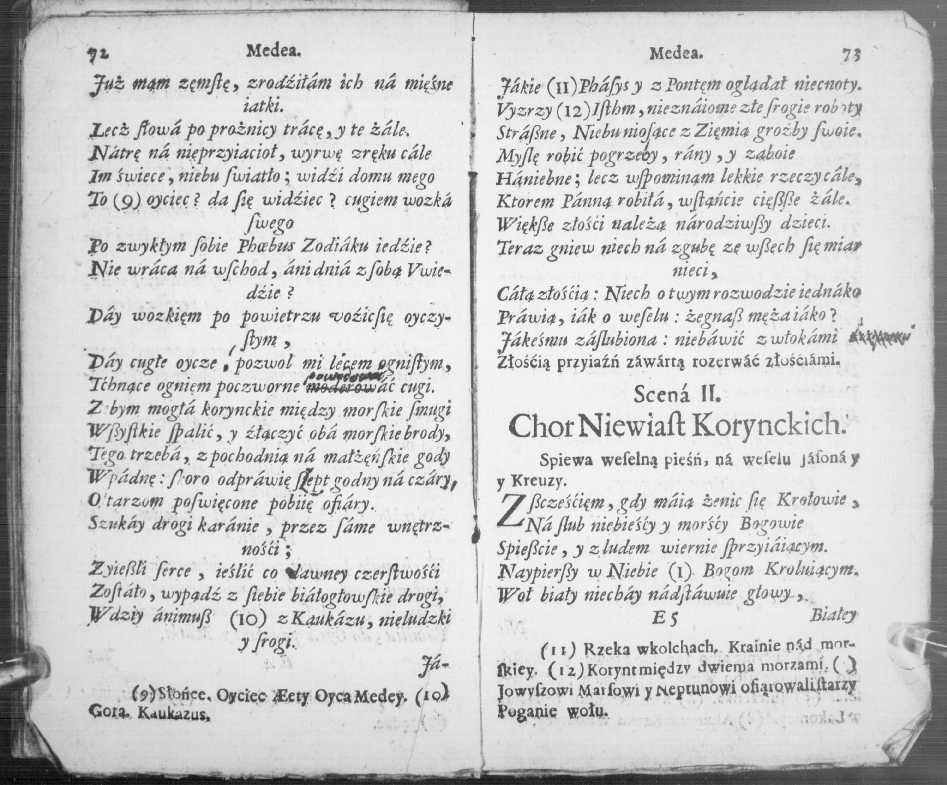 72 Medea.
Już mąm zęmſtę, zrodźiłám ich ná mięśne
iatki.
Lecż ſłowá po prożnicy trácę, y te żále.
Nátrę ná nięprzyiacioł, wyrwę zręku cále
Im świece, niebu ſwiatło; widźi domu mego
To (9) oyciec? da ſię widźiec? cugiem wozká
ſwego
Po zwykłym ſobie Phœbus Zodiáku iedźie?
Nie wráca ná wſchod, áni dniá z ſobą Vwie-
dźie?
Dáy wozkięm po powietrzu voźićſię oyczy-
ſtym,
Dáy cugłe oycze, pozwol mi lécem ogniſtym,
Tćhnące ognięm poczworne moderowáć cugi.
Z bym mogłá korynckie między morſkie ſmugi
Wſſyſtkie ſpalić, y złączyć obá morſkie brody,
Tego trzebá, z pochodnią ná małżęńſkie gody
Wpádnę: ſkoro odpráwię godny ná czáry,
Ołtarzom poſwięcone pobiię ofiáry.
Szukáy drogi karánie, przez ſáme wnętrz-
nośći;
Zyieſſli ſerce, ieślić co dawney czerſtwośći
Zoſtáło, wypądź z ſiebie białogłowſkie drogi,
Wdziy ánimuß (10) z Kaukázu, nieludzki
y ſrogi.
Já-
(9) Słońce. Oyciec Æety Oyca Medey. (10)
Gora. Kaukazus.
Medea. 73
Jákie (11) Pháſys y z Pontęm oglądał niecnoty.
Vyzrzy (12) Iſthm, nieznáiome złe ſrogie roboty
Stráßne, Niebu nioſące z Zięmią groźby ſwoie.
Myſlę robić pogrzeby, rány, y zaboie
Hániebne; lecz wſpominąm lekkie rzeczy cále,
Ktorem Pánną robiłá, wſtąńcie cięßße żále.
Więkße złośći należą národziwßy dzieci.
Teraz gniew niech ná zgubę zę wßech ſię miar
nieci,
Cáłą złośćią: Niech o twym rozwodzie iednáko
Práwią, iák o weſelu: żegnaß męża iáko?
Jákeśmu záſlubiona: niebáwić z włokámi
Złośćią przyiaźń záwártą rozerwáć złośćiámi.
Scená II.
Chor Niewiaſt Korynckich.
Spiewa weſelną pieśń, ná weſelu Jáſoná y
y Kreuzy.
Zſzcześćięm, gdy máią żenic ſię Krolowie,
Ná ſlub niebieśćy y morſćy Bogowie
Spieſzcie, y z ludem wiernie ſprzyiáiącym.
Naypierßy w Niebie (1) Bogom Kroluiącym.
Woł biały niecháy nádſtáwuie głowy,
E5 Białey
(11) Rzeka wkolchach. Krainie nád mor-
ſkiey. (12) Korynt między dwiema morzami. ( )
Jowyſzowi Marſowi y Neptunowi ofiąrowali ſtarzy
Poganie wołu.